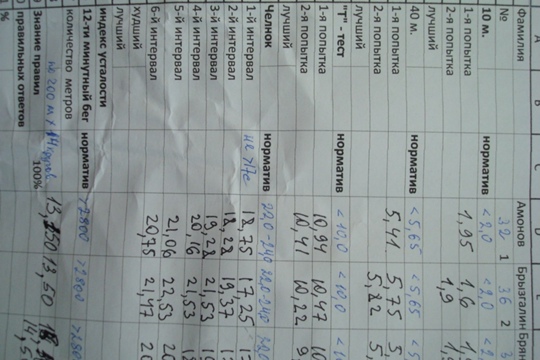 A B D E
Фамилия Амонов Брызгалин Брян
№ 32 1 36 2
10 м. норматив <2,0 <2,0
1-я попытка 1,95 1,6
2-я попытка 1,9
лучший
40 м. норматив <5,65 <5,65
1-я попытка 5,41 5,75
2-я попытка 5,82
лучший
"Т" - тест норматив <10,0 <10,0
1-я попытка 10,94 10,47
2-я попытка 10,41 10,22
лучший
Челнок норматив 22,0-24,0 22,0-24,0
1-й интервал 18,75 17,25
2-й интервал 18,28 19,37
3-й интервал 19,28 21,53
4-й интервал 20,16 21,53
5-й интервал 21,06 22,53
6-й интервал 20,75 21,47
худший
лучший
индекс усталости
12-ти минутный бег норматив >2800 >2800
количество метров 13,50
Знание правил 100%
правильных ответов
%